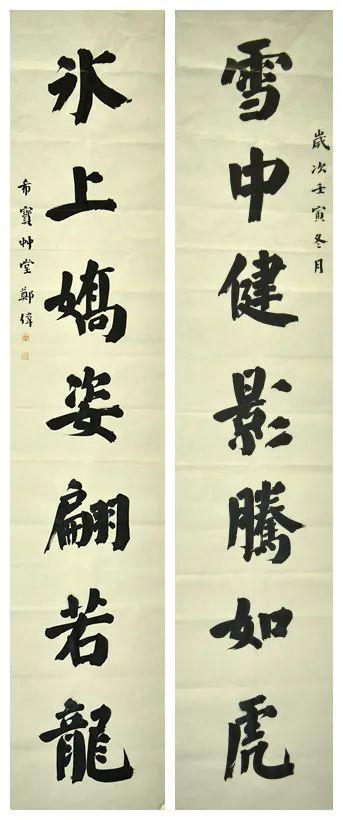 歲次壬寅冬月
雪中健影騰如虎
冰上嬌姿翩若龍
希寶艸堂鄭偉